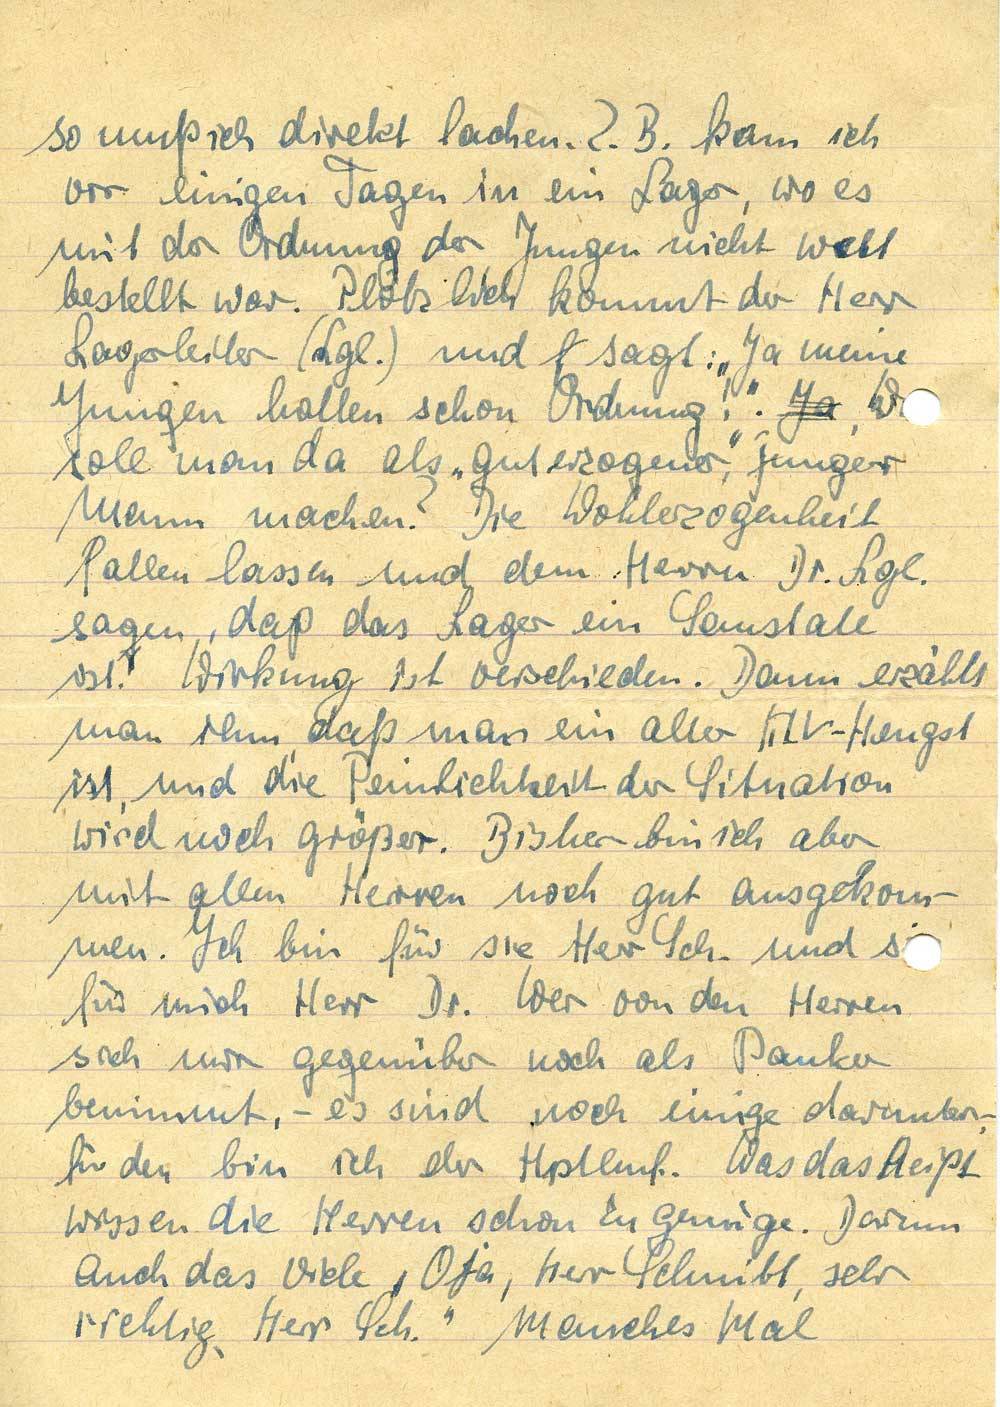 so muß ich direkt lachen. Z. B. kam ich
vor einigen Tagen in ein Lager, wo es
mit der Ordnung der Jungen nicht weit
bestellt war. Plötzlich kommt der Herr
Lagerleiter (Lgl.) und sagt: „Ja meine
Jungen halten schon Ordnung!“. Ja, W
soll man da als „gut erzogener“, junger
Mann machen? Die Wohlerzogenheit
fallen lassen und dem Herrn Dr. Lgl.
sagen, daß das Lager ein Saustall
ist! Wirkung ist verschieden. Dann erzählt
man ihm, daß man ein alter KLV-Hengst
ist, und die Peinlichkeit der Situation
wird noch größer. Bisher bin ich aber
mit allen Herren noch gut ausgekom-
men. Ich bin für sie Herr Sch. und si
für mich Herr Dr. Wer von den Herren
sich mir gegenüber noch als Pauker
benimmt, - es sind noch einige darunter,-
für den bin ich der Hptlmf. Was das heißt
wissen die Herren schon zu genüge. Darum
auch das viele „Oja, Herr Schmidt, sehr
richtig, Herr Sch.“ Manches Mal